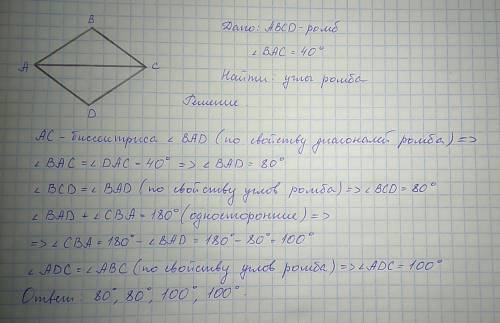 B
A
C
D
Дано: ABCD-ромб
∠BAC=40°
Найти: углы ромба
Решение
AC-биссектриса ∠BAD (по свойству диагоналей ромба) =>
∠BAC=∠DAC-40° => ∠BAD=80°
∠BCD=∠BAD (по свойству углов ромба) => ∠BCD=80°
∠BAD+∠CBA=180° (односторонние) =>
=> ∠CBA=180°-∠BAD=180°-80°=100°
∠ADC=∠ABC (по свойству углов ромба) => ∠ADC=100°
Ответ: 80°, 80°, 100°, 100°.